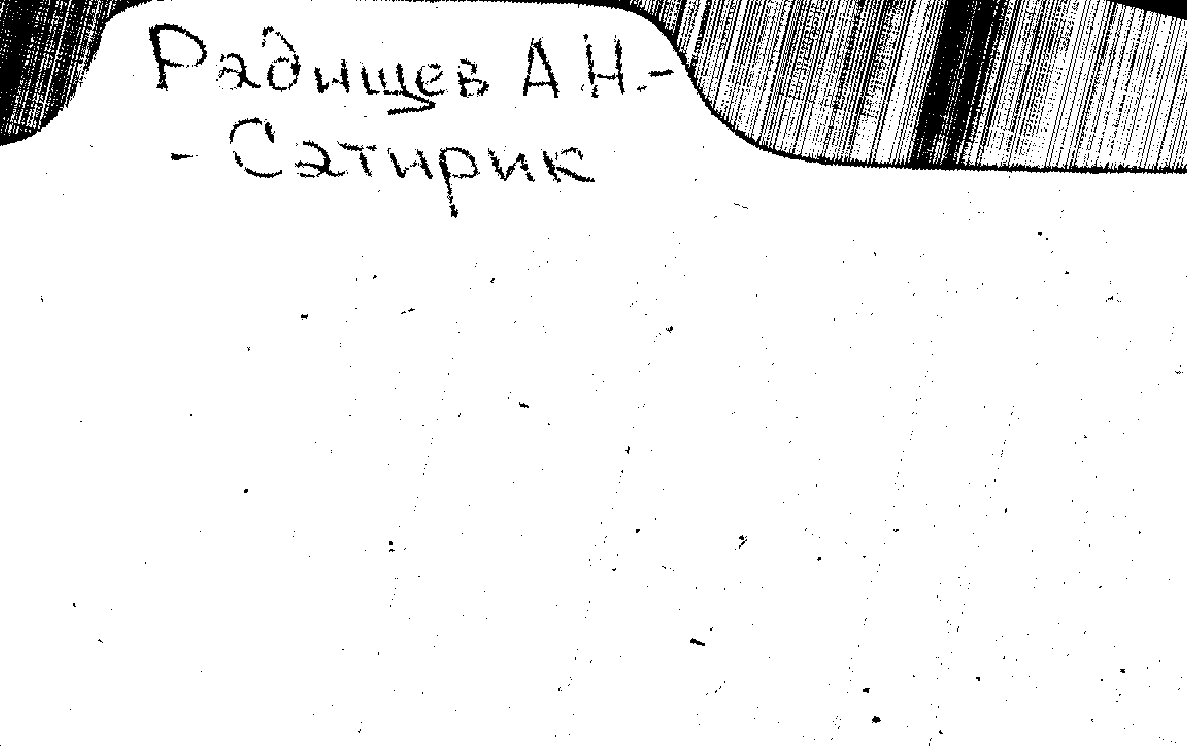 Радищев А Н. -
- Сатирик